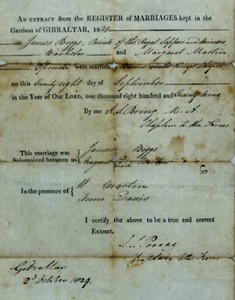 AN EXTRACT from the REGISTER of MARRIAGES kept in the
Garrison of GIBRALTAR, 1829
James Biggs, Private of the Royal Sappers and Miners
Bachelor and Margaret Martin
Spinster were married
on this Twenty eight day of September
in the Year of Our Lord, one thousand eight hundred and Twenty nine
By me
Chaplain to the Forces
This marriage was
Solemnized between us
James Biggs
Martin
In the presence of
W. Martin
Anne Davis
I certify the above to be a true and correct
Extract.
Chaplain to the Forces
Gibraltar
2d October 1829.